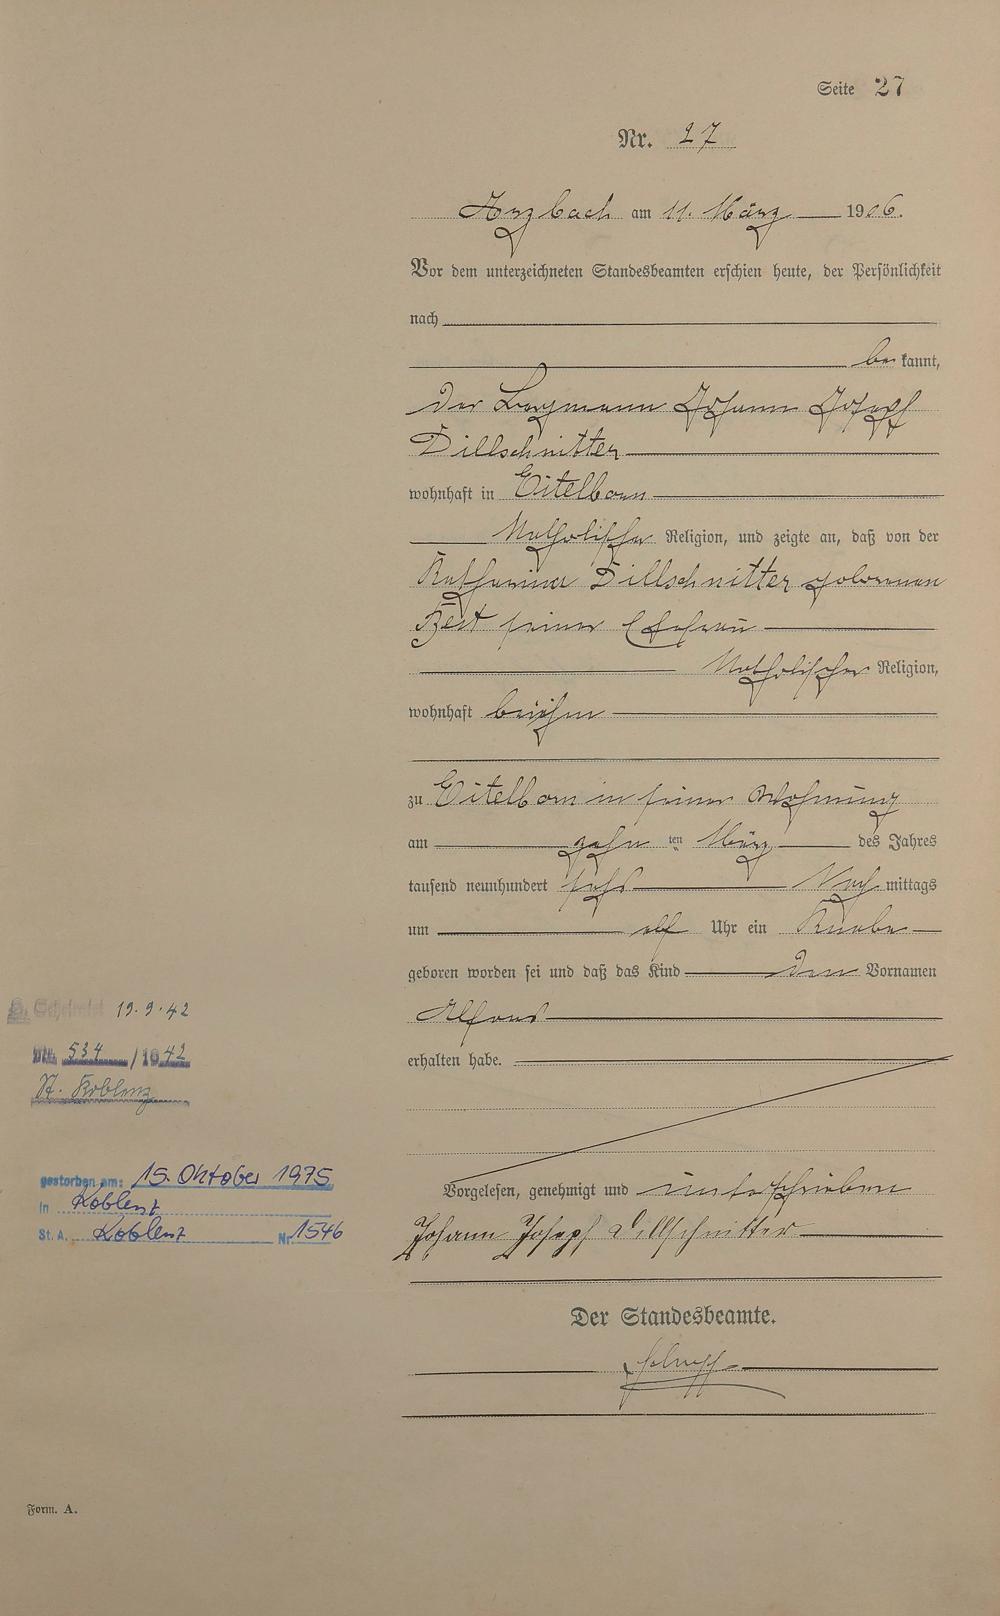 Seite 27
Nr. 27
Arzbach am 11. März 1906.
Vor dem unterzeichneten Standesbeamten erschien heute, der Persönlichkeit
nach
bekannt,
der Bergmann Johann Josepf
Dillschnitter
wohnhaft in Eitelborn
Katholischer Religion, und zeigte an, daß von der
Katharina Dillschnitter geborenen
Best seiner Ehefrau
Katholischer Religion,
wohnhaft bei ihm
zu Eitelborn in seiner Wohnung
am zehn ten März des Jahres
tausend neunhundert sechs Nachmittags
um elf Uhr ein Knabe
geboren worden sei und daß das Kind den Vornamen
Alfons
erhalten habe.
Vorgelesen, genehmigt und unterschrieben
Johann Josepf Dillschnitter
Der Standesbeamte.
19.9.42
Nr. 534/1942
St. Koblenz
gestorben am: 15. Oktober 1975
in Koblenz
St. A. Koblenz Nr. 1546
Form. A.